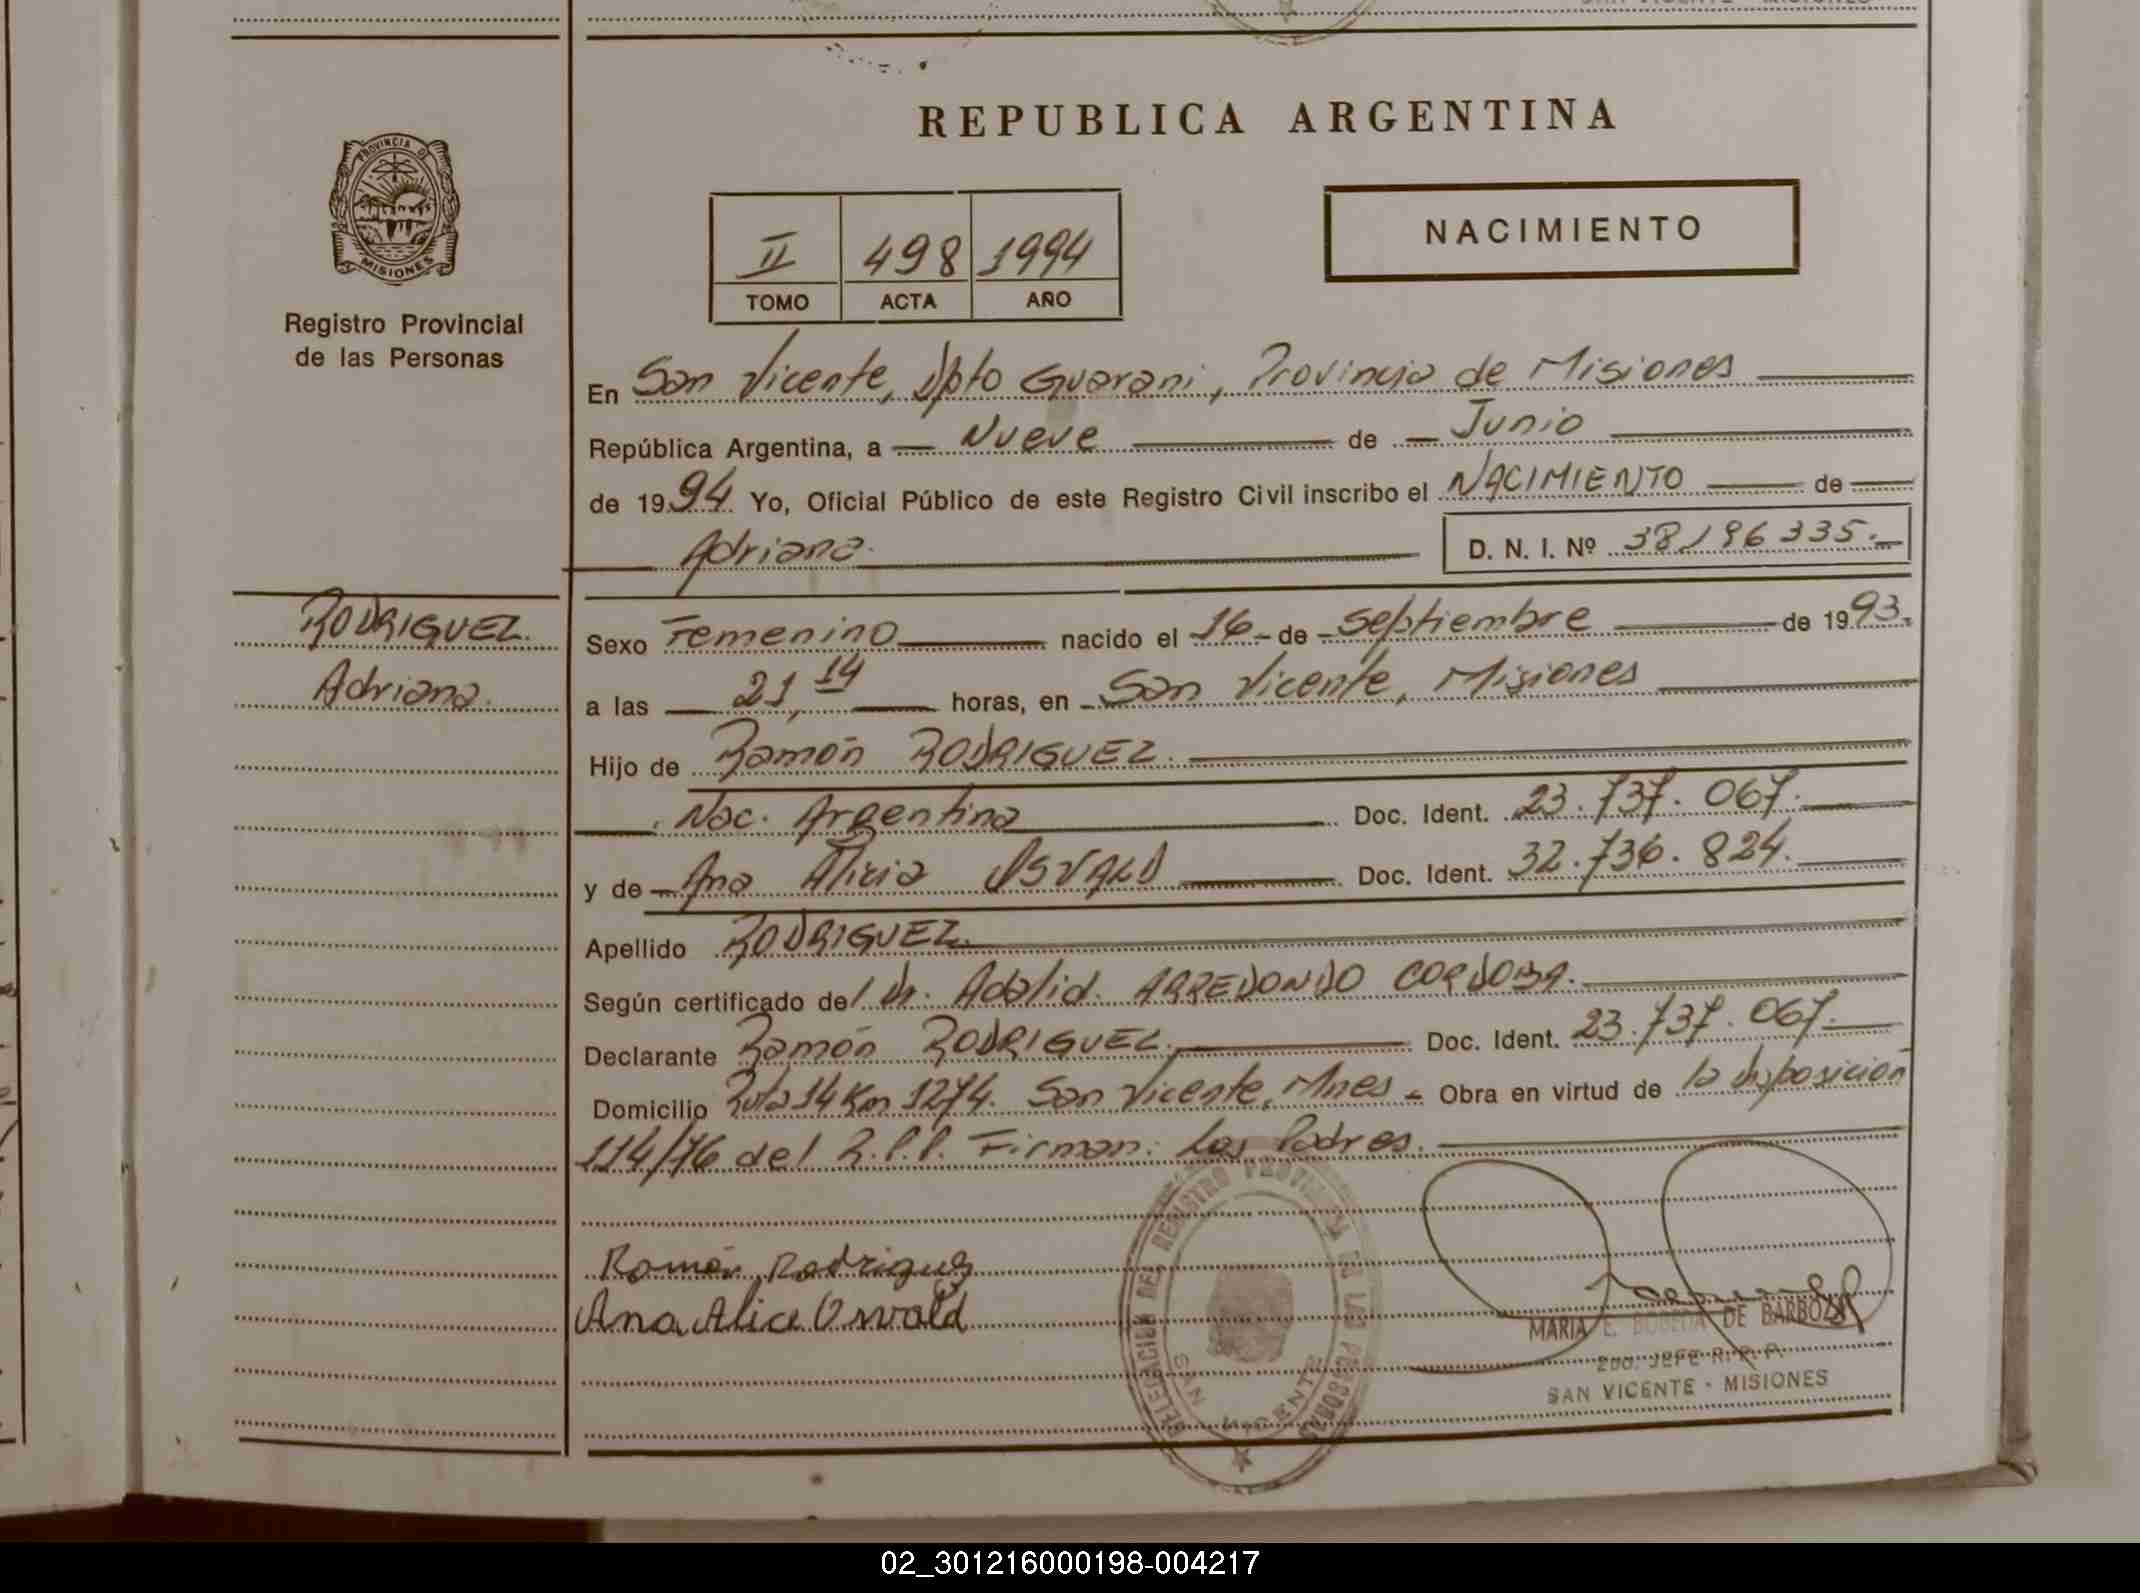 REPUBLICA ARGENTINA
PROVINCIA DE
MISIONES
Registro Provincial
de las Personas
II 498 1994
TOMO ACTA AÑO
NACIMIENTO
En San Vicente, Dpto Guarani, Provincia de Misiones
República Argentina, a Nueve de Junio
de 1994 Yo, Oficial Público de este Registro Civil inscribo el NACIMIENTO de
Adriana. D. N. I. Nº 38196335.
RODRIGUEZ.
Adriana.
Sexo Femenino nacido el 16 de Septiembre de 1993.
a las 21,14 horas, en San Vicente, Misiones
Hijo de Ramón RODRIGUEZ.
Nac. Argentina Doc. Ident. 23.737.067.
y de Ana Alicia OSVALD Doc. Ident. 32.736.824.
Apellido RODRIGUEZ.
Según certificado del Dr. Adalid. ARREDONDO CORDOBA.
Declarante Ramón RODRIGUEZ. Doc. Ident. 23.737.067.
Domicilio Ruta 14 Km 1274. San Vicente, Mnes - Obra en virtud de la disposición
114/76 del R.P.P. Firman: Los Padres.
Ramón Rodriguez
Ana Alice Oswald
DELEGACION DEL REGISTRO PROVINCIAL DE LAS PERSONAS
SAN VICENTE
MARIA E. BOBEDA DE BARBOZA
2do. JEFE R. P. P.
SAN VICENTE - MISIONES
02_301216000198-004217